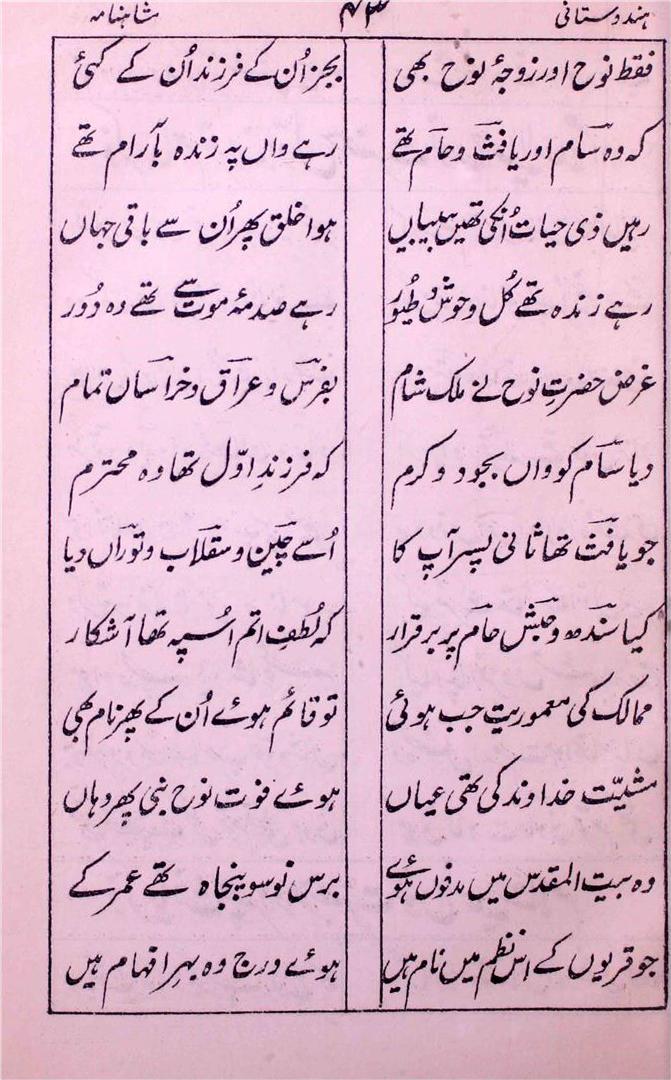 ہندوستانی ۴۳ شاہنامہ
فقط نوح اور زوجۂ نوح بھی بجز اُن کے فرزند اُن کے کئی
کہ وہ سام اور یافث و حام تھے رہے واں پہ زندہ بآرام تھے
رہیں ذی حیات اُنکی تھیں بیبیاں ہوا خلق پھر اُن سے باقی جہاں
رہے زندہ تھے کُل وحوش و طیُور رہے صدمۂ موت سے تھے وہ دُور
غرض حضرتِ نوح نے ملک شام بفرس و عراق و خراساں تمام
دیا سام کو واں بجود و کرم کہ فرزندِ اوّل تھا وہ محترم
جو یافث تھا ثانی پسر آپ کا اُسے چین و سقلاب و توراں دیا
کیا سندھ و حبش حام پر برقرار کہ لُطفِ اتم اسپہ تھا آشکار
ممالک کی معموریت جب ہوئی تو قائم ہوے اُن کے پھر نام بھی
مشیّت خداوند کی تھی عیاں ہوے فوت نوح نبی پھر وہاں
وہ بیت المقدس میں مدفوں ہوے برس نو سو پنجاہ تھے عمر کے
جو قریوں کے اس نظم میں نام ہیں ہوے درج وہ بہر افہام ہیں